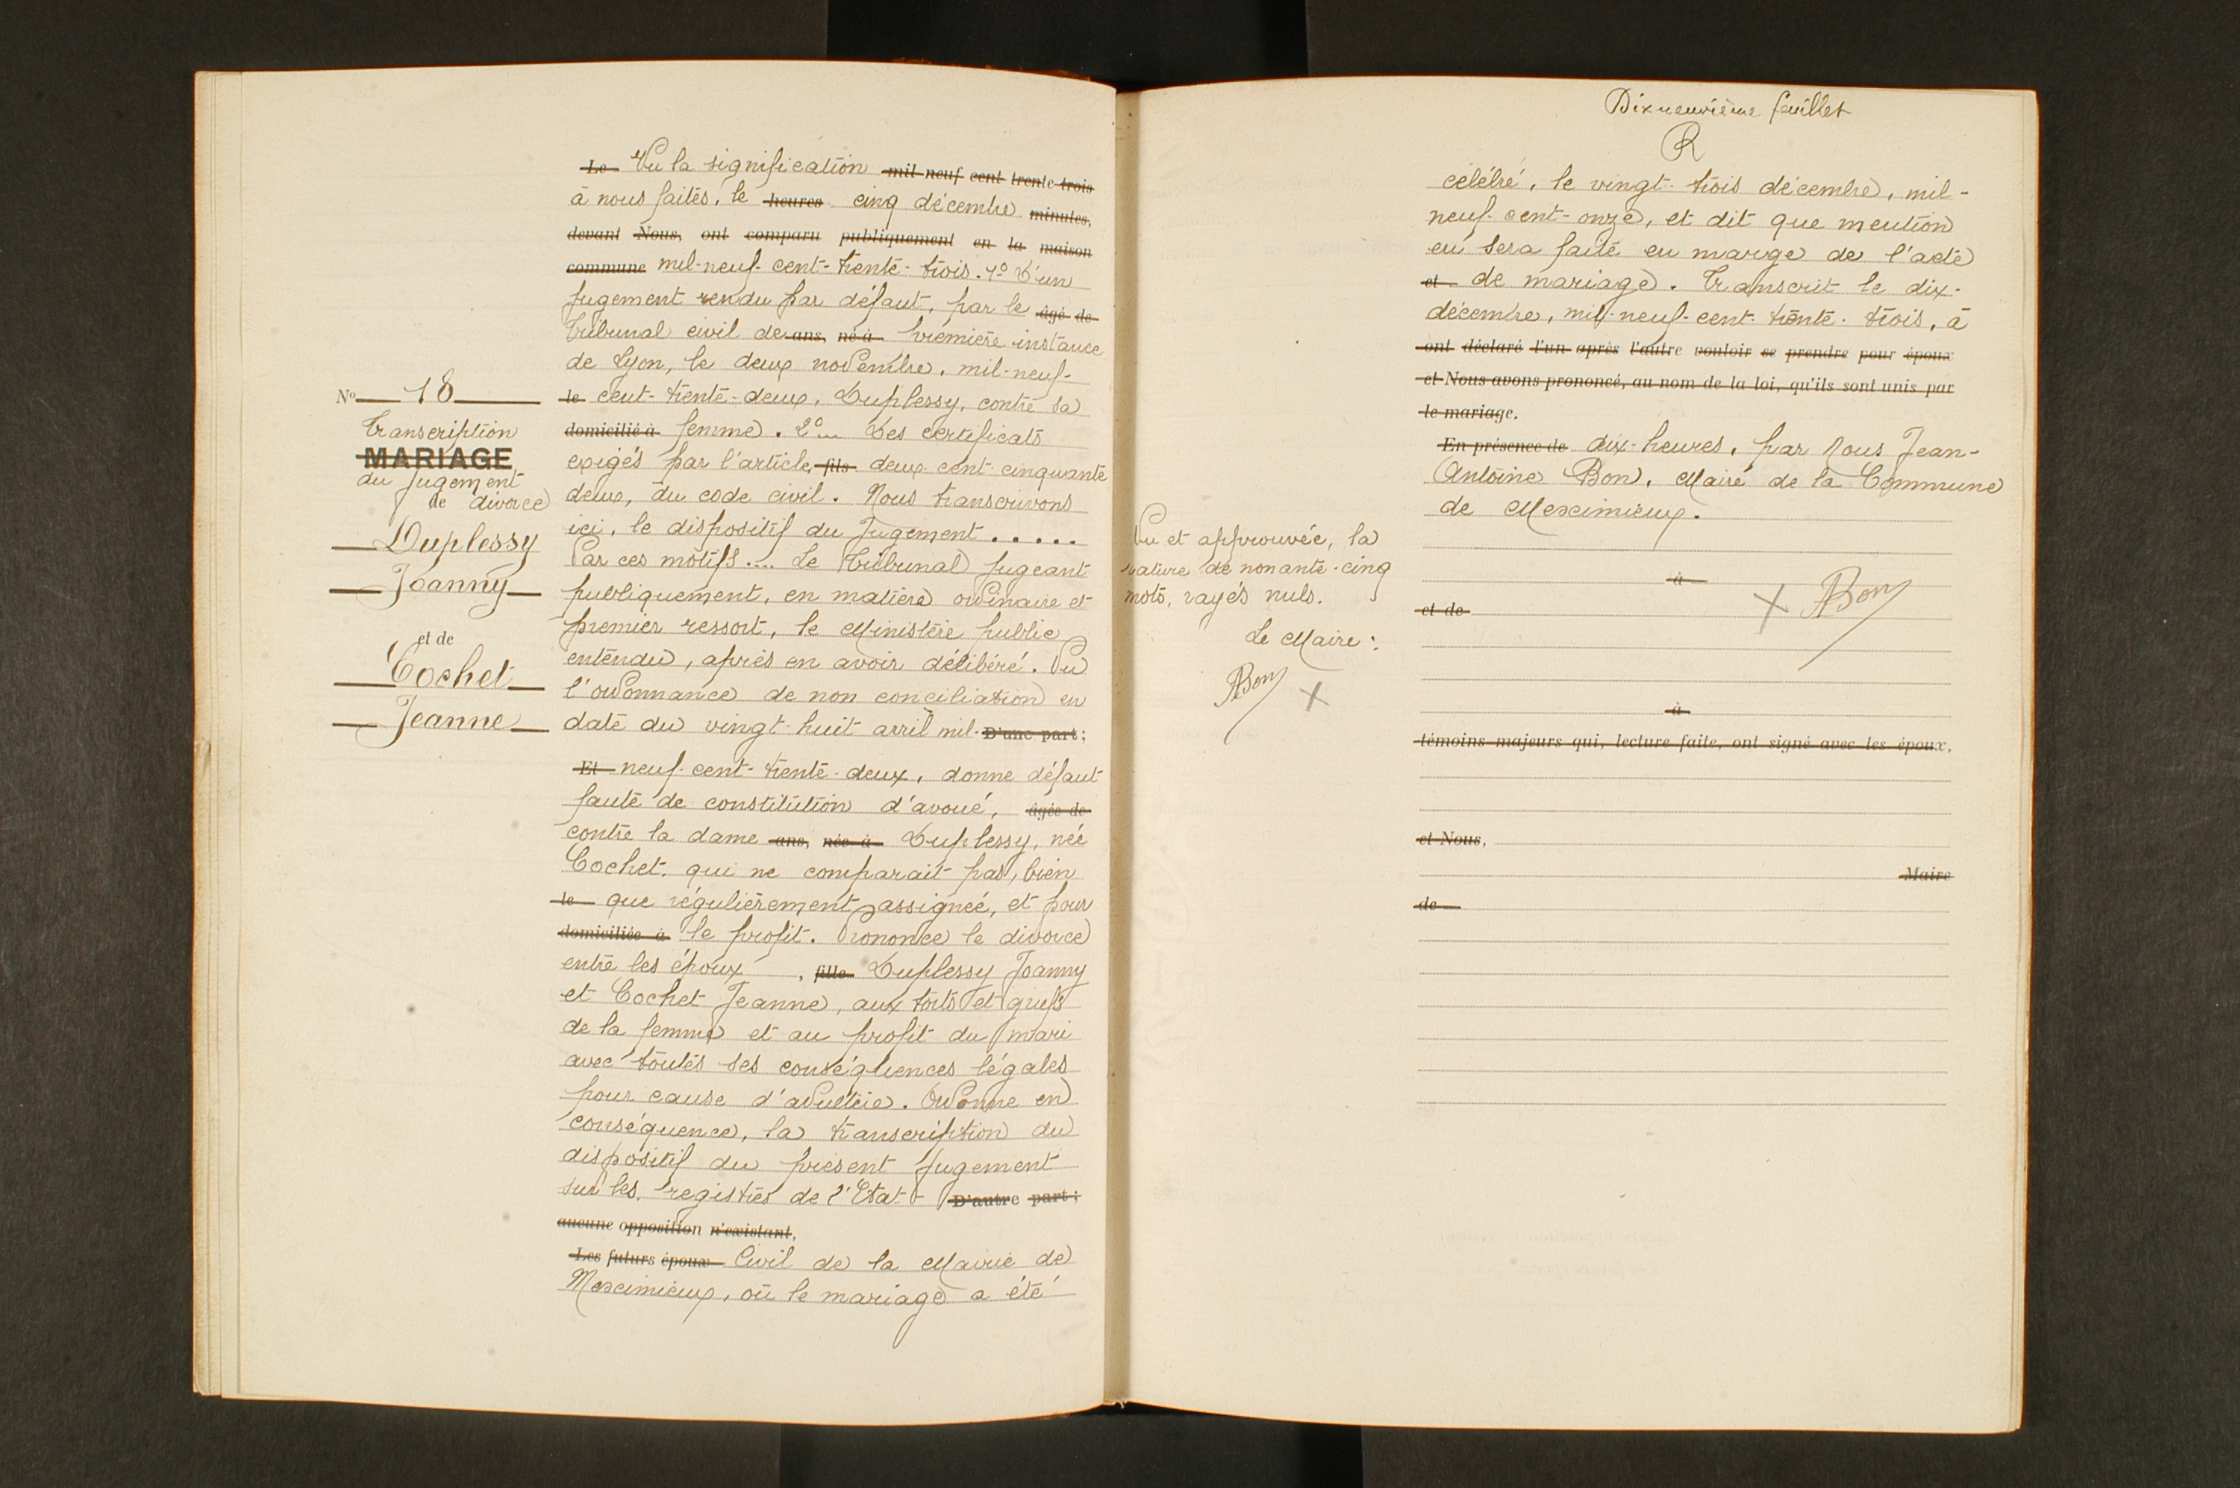 Le Vu la signification mil neuf cent trente-trois
à nous faites, le heures cinq décembre minutes,
devant Nous, ont comparu publiquement en la maison
commune mil-neuf-cent-trente-trois. 1° D'un
Jugement rendu par défaut, par le âgé de
Tribunal civil de ans, né à première instance
de Lyon, le deux novembre, mil-neuf-
le cent-trente-deux, Duplessy, contre sa
domicilié à femme. 2° ... Des certificats
exigés par l'article, fils deux cent cinquante
deux, du code civil. Nous transcrivons
ici, le dispositif du Jugement.....
Par ces motifs.... Le Tribunal jugeant
publiquement, en matière ordinaire et
premier ressort, le Ministère public
entendu, après en avoir délibéré. Vu
l'ordonnance de non conciliation en
date du vingt-huit avril mil- D'une part;
Et neuf-cent-trente-deux, donne défaut
faute de constitution d'avoué, âgée de
contre la dame ans, née à Duplessy, née
Cochet, qui ne comparait pas, bien
le que régulièrement assignée, et pour
domiciliée à le profit. Prononce le divorce
entre les époux, fille Duplessy Joanny
et Cochet Jeanne, aux torts et griefs
de la femme et au profit du mari
avec toutes ses conséquences légales
pour cause d'adultère. Ordonne en
conséquence, la transcription du
dispositif du présent Jugement
sur les registres de l'Etat- D'autre part;
aucune opposition n'existant,
Les futurs époux Civil de la Mairie de
Meximieux, où le mariage a été
N° 18
Transcription
MARIAGE
du Jugement
de divorce
Duplessy
Joanny
et de
Cochet
Jeanne
Dixneuvième feuillet
R
célébré, le vingt-trois décembre, mil-
neuf-cent-onze, et dit que mention
en sera faite en marge de l'acte
et de mariage. Transcrit le dix-
décembre, mil-neuf-cent-trente-trois, à
ont déclaré l'un après l'autre vouloir se prendre pour époux
et Nous avons prononcé, au nom de la loi, qu'ils sont unis par
le mariage.
En présence de dix-heures, par Nous Jean-
Antoine Bon, Maire de la Commune
de Meximieux.
à
et de
ABon
à
témoins majeurs qui, lecture faite, ont signé avec les époux,
et Nous,
Maire
de
Vu et approuvée, la
rature de nonante-cinq
mots, rayés nuls.
Le Maire:
ABon